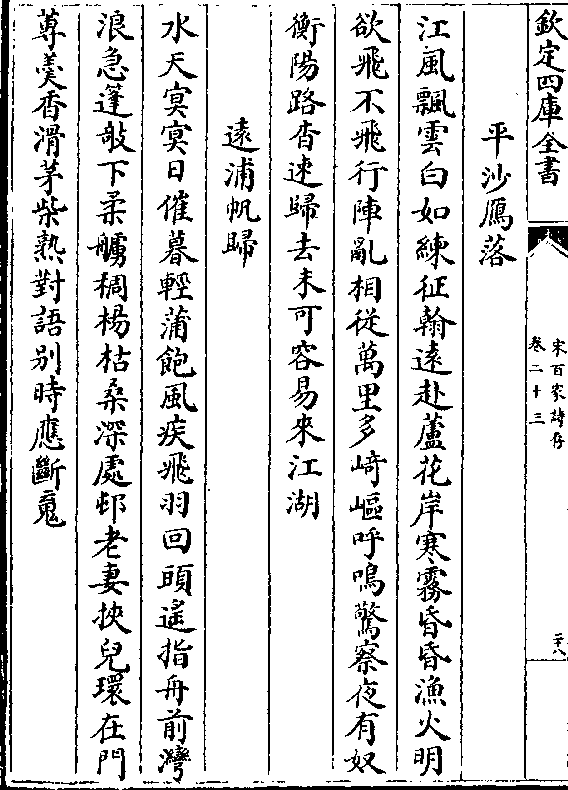 欽定四庫全書
宋百家詩存
卷二十三
二十八
平沙鴈落
江風飄雲白如練征翰遠赴蘆花岸寒霧昏昏漁火明
欲飛不飛行陣亂相從萬里多崎嶇呼鳴驚察夜有奴
衡陽路杳速歸去未可容易來江湖
遠浦帆歸
水天㝠㝠日催暮輕蒲飽風疾飛羽回頭遙指舟前灣
浪急蓬敲下柔艣稠楊枯桑深處邨老妻挾兒環在門
蓴羹香滑茅柴熟對語别時應斷䰟